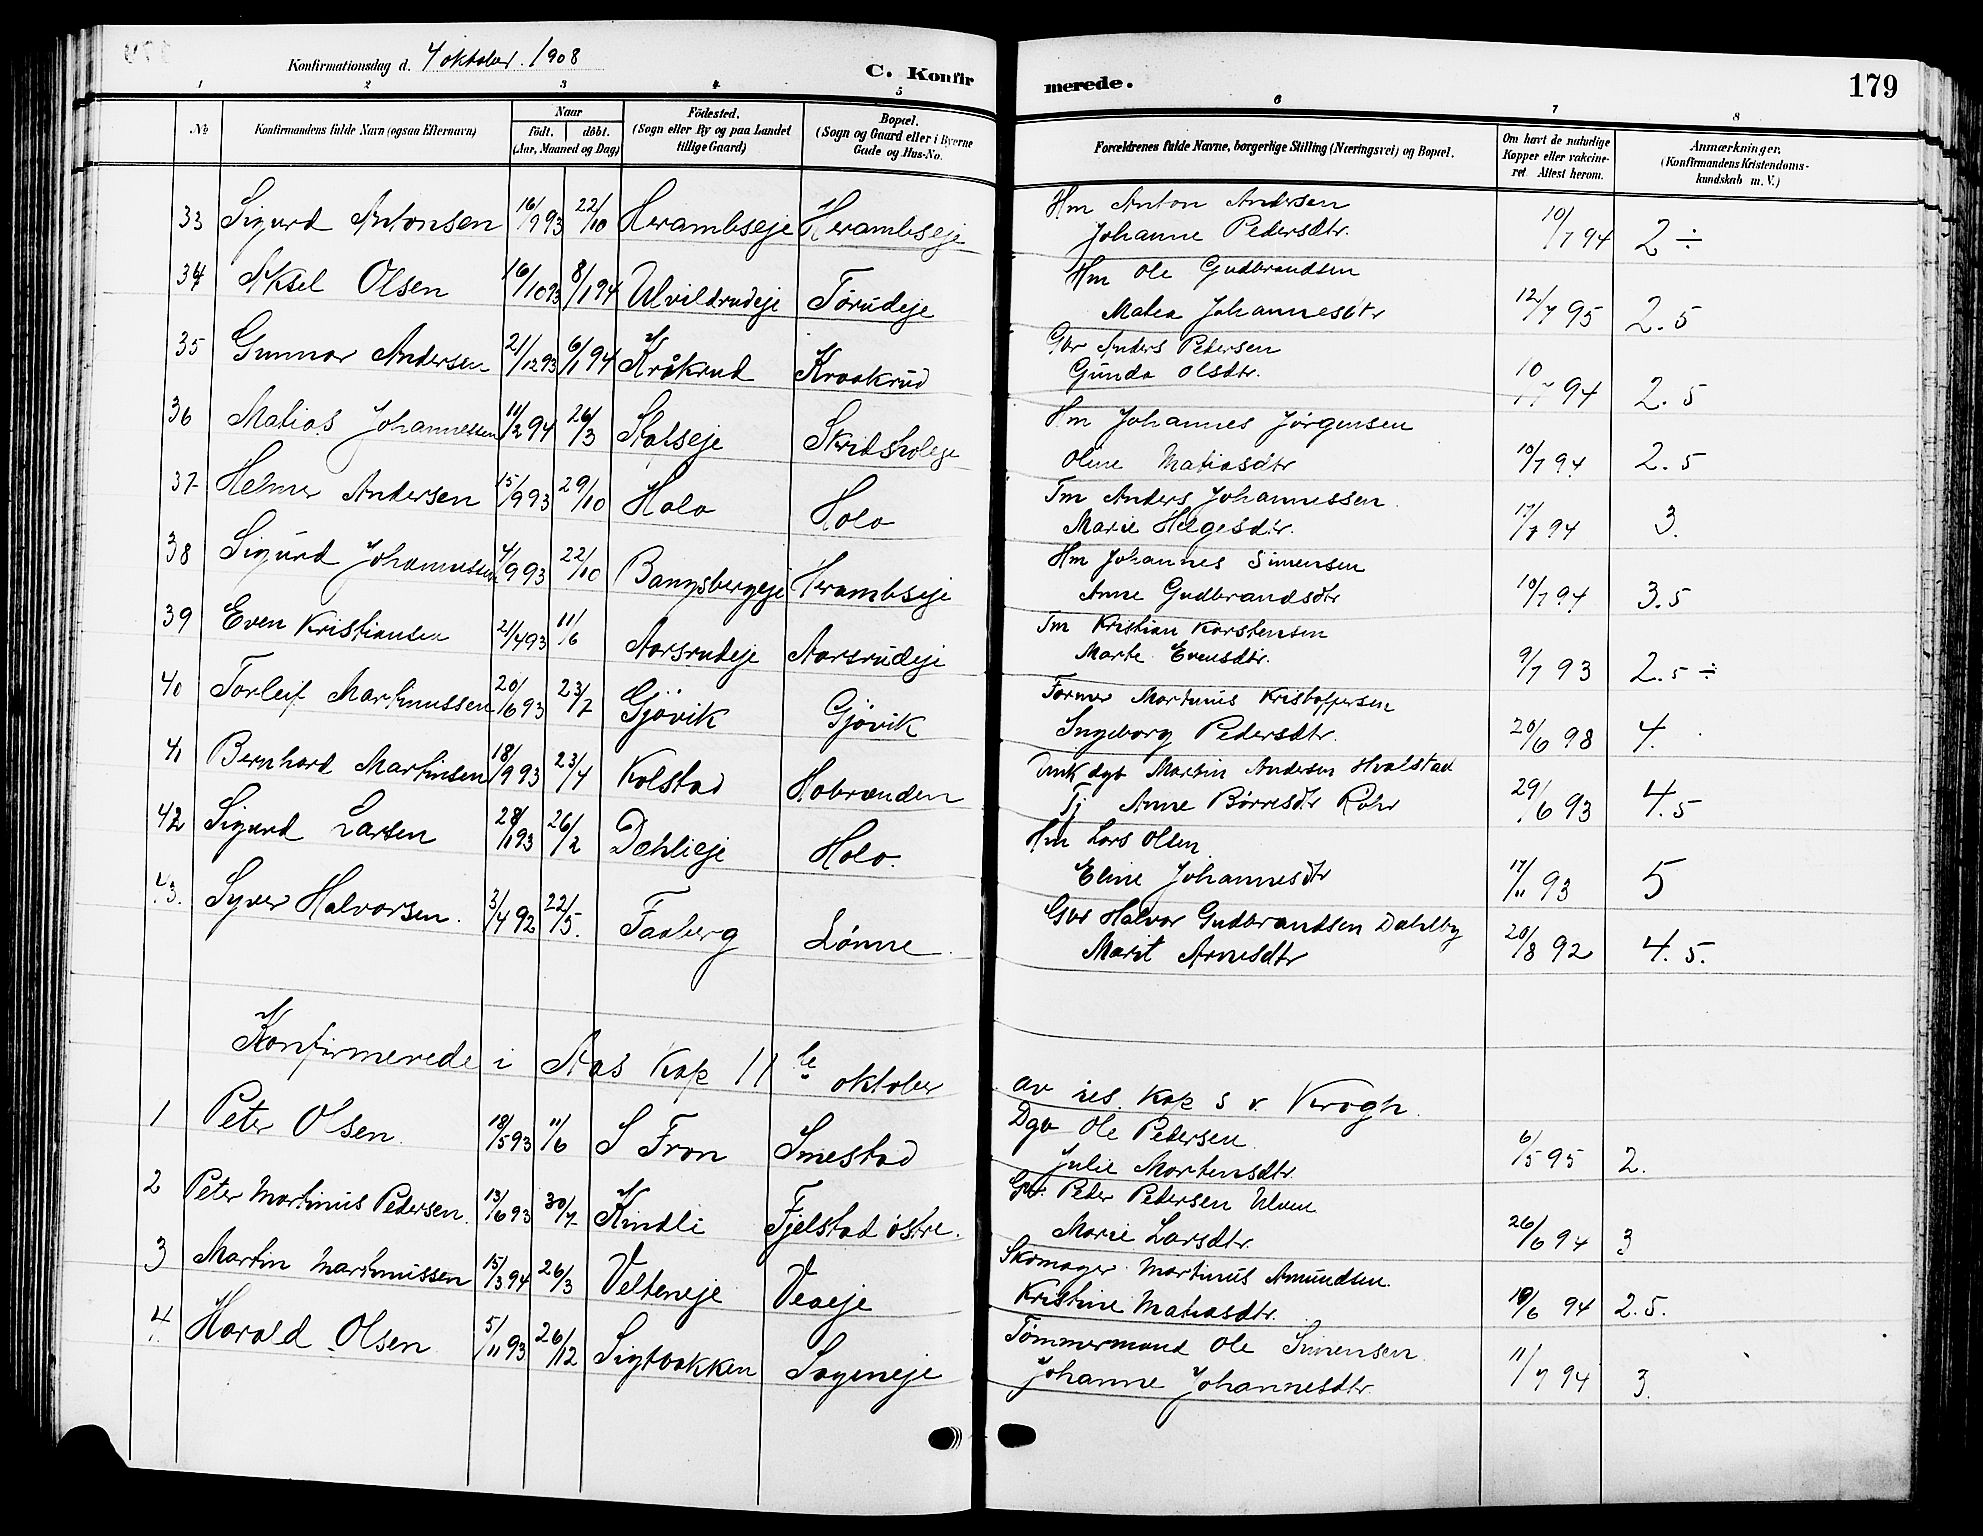 Konfirmationsdag d. 4 oktober. 1908
C. Konfirmerede.
179
1 2 3 4 5 6 7 8
№ Konfirmandens fulde Navn (ogsaa Efternavn) Naar födt. döbt. (Aar, Maaned og Dag) Födested. (Sogn eller By og paa Landet tillige Gaard) Bopæl. (Sogn og Gaard eller i Byerne Gade og Hus-No. Forældrenes fulde Navne, borgerlige Stilling (Næringsvei) og Bopæl. Om havt de naturlige Kopper eller vakcineret Attest herom. Anmærkninger. (Konfirmandens Kristendomskundskab m. V.)
33 Sigurd Antonsen 16/9 93 22/10 Herambseje Herambseje Hm Anton Andersen
Johanne Pedersdtr. 10/7 94 2 ÷
34 Aksel Olsen 16/10 93 8/1 94 Ulvildrudeje Törudeje Hm Ole Gudbrandsen
Matea Johannesdtr 12/7 95 2.5
35 Gunnar Andersen 21/12 93 6/1 94 Kråkrud Kraakrud Gbr Anders Pedersen
Gunda Olsdtr. 10/7 94 2.5
36 Matias Johannessen 11/2 94 26/3 Stalseje Skridsholeje Hm Johannes Jörgensen
Oline Matiasdtr 10/7 94 2.5
37 Helmer Andersen 15/9 93 29/10 Holo Holo Tm Anders Johannessen
Marie Helgesdtr. 17/7 94 3.
38 Sigurd Johannessen 4/9 93 22/10 Bangsbergeje Herambseje Hm Johannes Simensen
Anne Gudbrandsdtr 10/7 94 3.5
39 Even Kristiansen 21/4 93 11/6 Aarsrudeje Aarsrudeje Tm Kristian Karstensen
Marte Evensdtr. 9/7 93 2.5 ÷
40 Torleif Martinussen 20/6 93 23/7 Gjövik Gjövik Former Martinus Kristoffersen
Ingeborg Pedersdtr. 20/6 98 4.
41 Bernhard Martinsen 18/9 93 23/4 Kolstad Hobrænden Umk dgb Martin Andersen Hvalstad
Tj Anne Börresdtr Rohr 29/6 93 4.5
42 Sigurd Larsen 28/1 93 26/2 Dehlieje Holo. Hm Lars Olsen
Eline Johannesdtr 17/11 93 5
43. Syver Halvorsen. 3/4 92 22/5. Faaberg Lönne. Gbr Halvor Gudbrandsen Dahlby
Marit Arnesdtr 20/8 92 4.5.
Konfirmerede i Aas Kap 11te oktober av res. Kap S v. Krogh.
1 Peter Olsen. 18/5 93 11/6 S Fron Smestad Dgb Ole Pedersen
Julie Mortensdtr. 6/5 95 2.
2 Peter Martinus Pedersen. 13/6 93 30/7 Kindli Fjelstad östre. Gbr. Peder Pedersen Ulven
Marie Larsdtr. 26/6 94 3
3 Martin Martinussen 15/3 94 26/3 Velteneje Veaeje Skomager Martinus Amundsen.
Kristine Matiasdtr. 19/6 94 2.5.
4. Harald Olsen 5/11 93 26/12 Sigtbakken Sageneje Tömmermand Ole Simensen
Johanne Johannesdtr. 11/7 94 3.